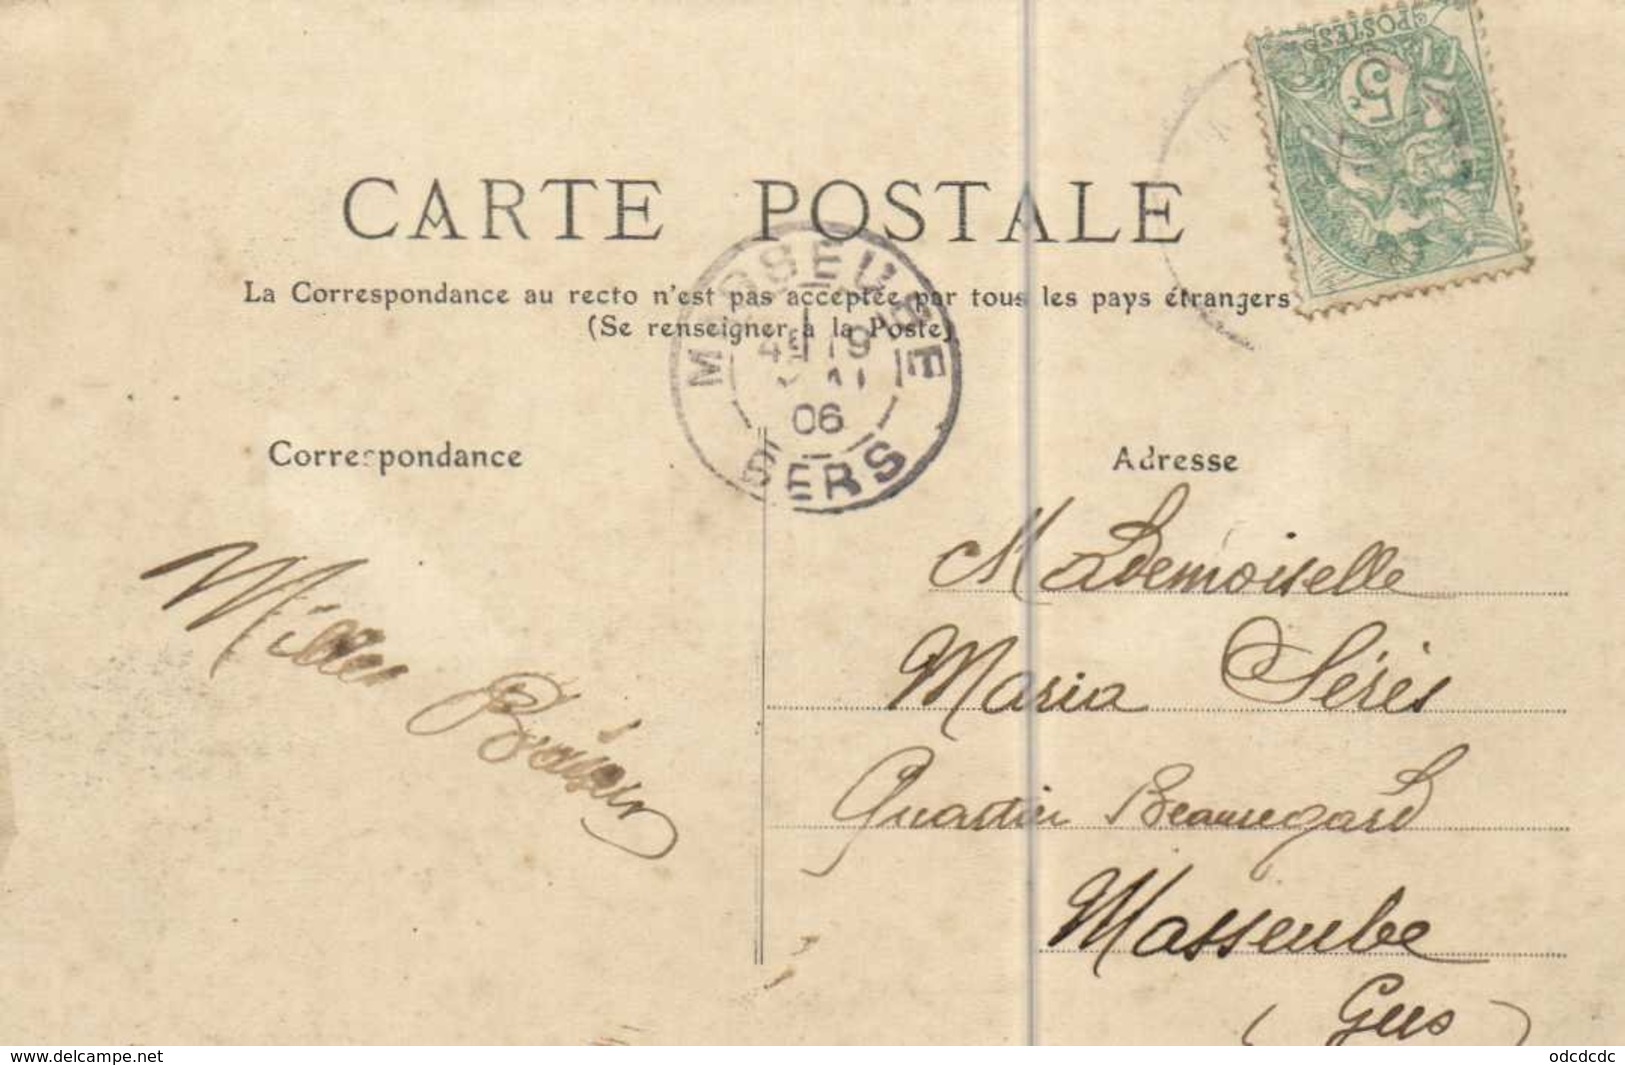 POSTES
5
CARTE POSTALE
La Correspondance au recto n'est pas acceptée par tous les pays étrangers
(Se renseigner à la Poste)
MASSEUBE
4E 19
MAI
06
GERS
Correspondance
Adresse
Milles Baisers
Mademoiselle
Maria Sérès
Quartier Beauregard
Masseube
(Gers)
www.delcampe.net
odcdcdc